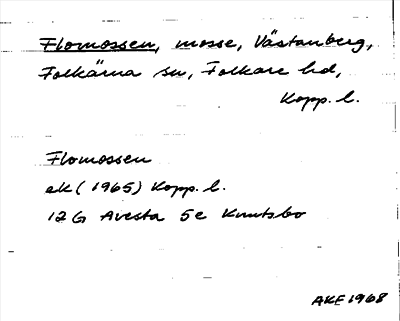 Flomossen, mosse, Västanberg,
Folkärna sn, Folkare hd,
Kopp. l.
Flomossen
ek (1965) Kopp. l.
12 G Avesta 5 e Knutsbo
AKE 1968